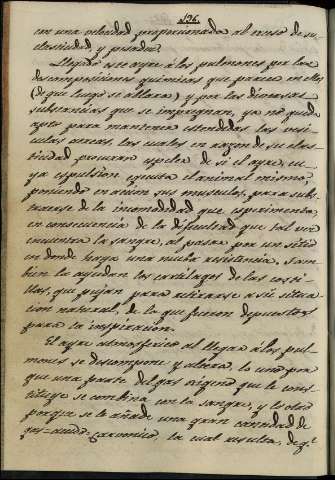 136.
con una velocidad proporcionada al exceso de su
elasticidad y presion.
Llegado este ayre á los pulmones por las
descomposiciones quimicas que padece en ellos
(de que luego se hablará) y por las diversas
substancias que se impregnan, ya no puede
apto para mantener estendidas las vesi-
culas aereas, las cuales en razon de su elas-
ticidad procuran expeler de si el ayre, cu-
ya espulsion egecuta el animal mismo,
poniendo en accion sus musculos, para subs-
traerse de la incomodidad que esperimenta,
en consecuencia de la dificultad que tal vez
encuentra la sangre, al pasar por un sitio
en donde haya una nueva resistencia, tam-
bien la ayudan los cartilages de las costi-
llas, que pujan para retirarse a su situa-
cion natural, de la que fueron depuestos
para la inspiracion.
El ayre atmosferico al llegar á los pul-
mones se descompone y altera, lo uno por
que una parte del gas oxigeno que le cons-
tituye se combina con la sangre, y lo otro
porque se le añade una gran cantidad de
gas-acido-carvonico, la cual resulta, de q.e